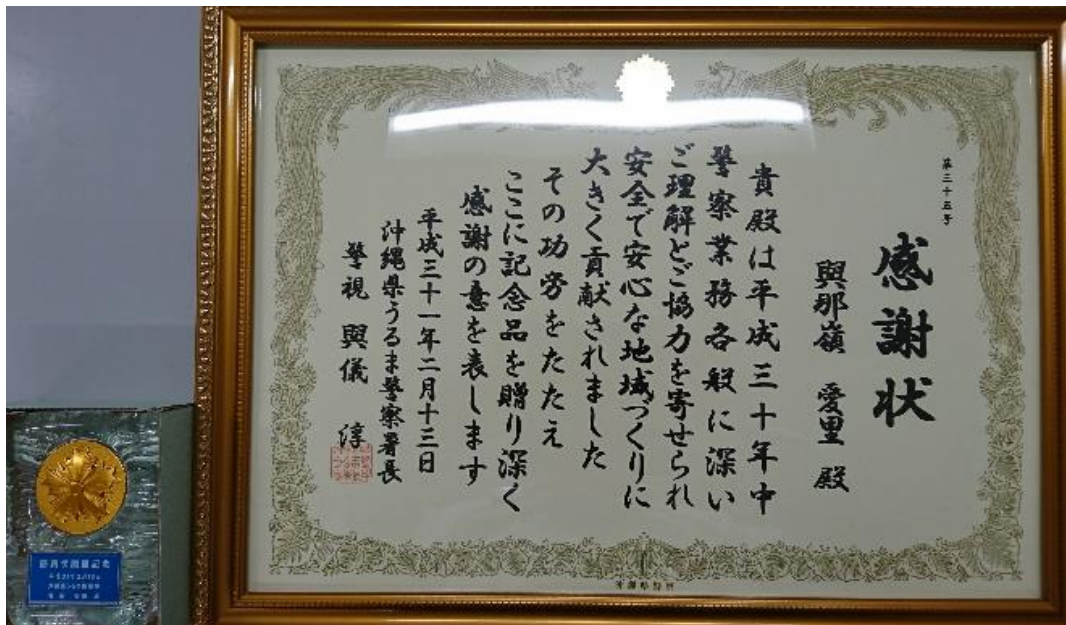 第三十五号
感謝状
與那嶺 愛里 殿
貴殿は平成三十年中
警察業務各般に深い
ご理解とご協力を寄せられ
安全で安心な地域づくりに
大きく貢献されました
その功労をたたえ
ここに記念品を贈り深く
感謝の意を表します
平成三十一年二月十三日
沖縄県うるま警察署長
警視 與儀 淳